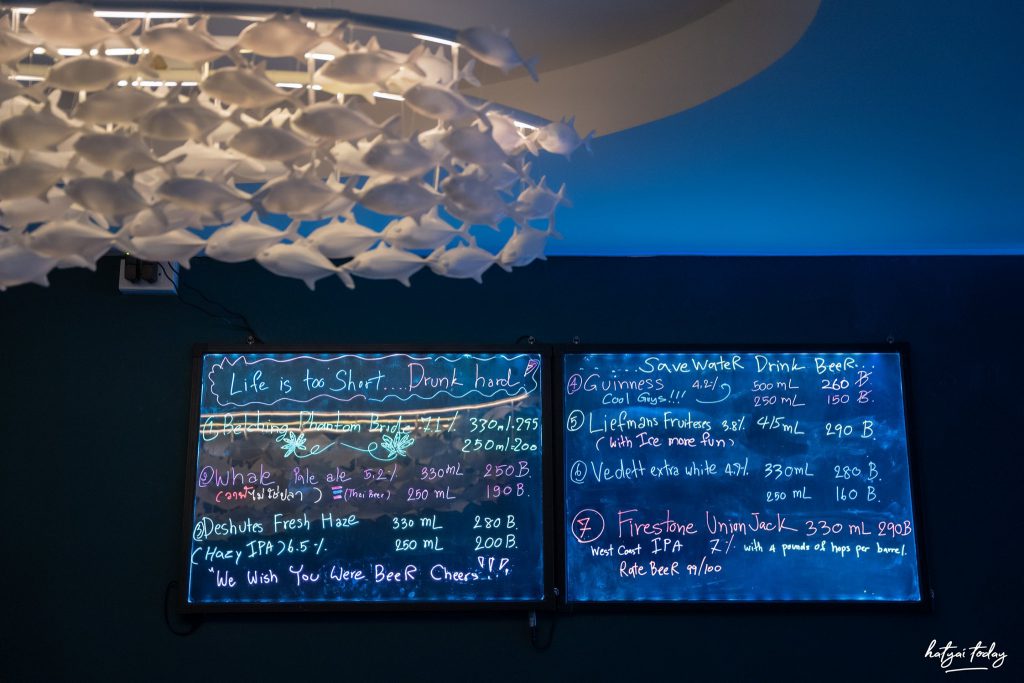 Life is too Short.... Drunk hard
① Belching Phantom Bride 7.1% 330ml-295
250ml-200
② Whale Pale ale 5.2% 330mL 250 B.
(วาฬไม่ใช่ปลา) (Thai Beer) 250 mL 190 B.
③ Deshutes Fresh Haze 330 mL 280 B.
(Hazy IPA) 6.5 % 250 mL 200 B.
"We Wish You Were BeeR Cheers!!!
...Save WateR Drink BeeR...
④ Guinness 4.2% 500 mL 260 B.
Cool Guys.!!! 250 mL 150 B.
⑤ Liefmans Fruitesses 3.8% 415mL 290 B.
(With Ice more fun)
⑥ Vedett extra white 4.7% 330mL 280 B.
250 mL 160 B.
⑦ Firestone Union Jack 330 mL 290B
West Coast IPA 7% with 4 pounds of hops per barrel.
Rate BeeR 99/100
hatyai today